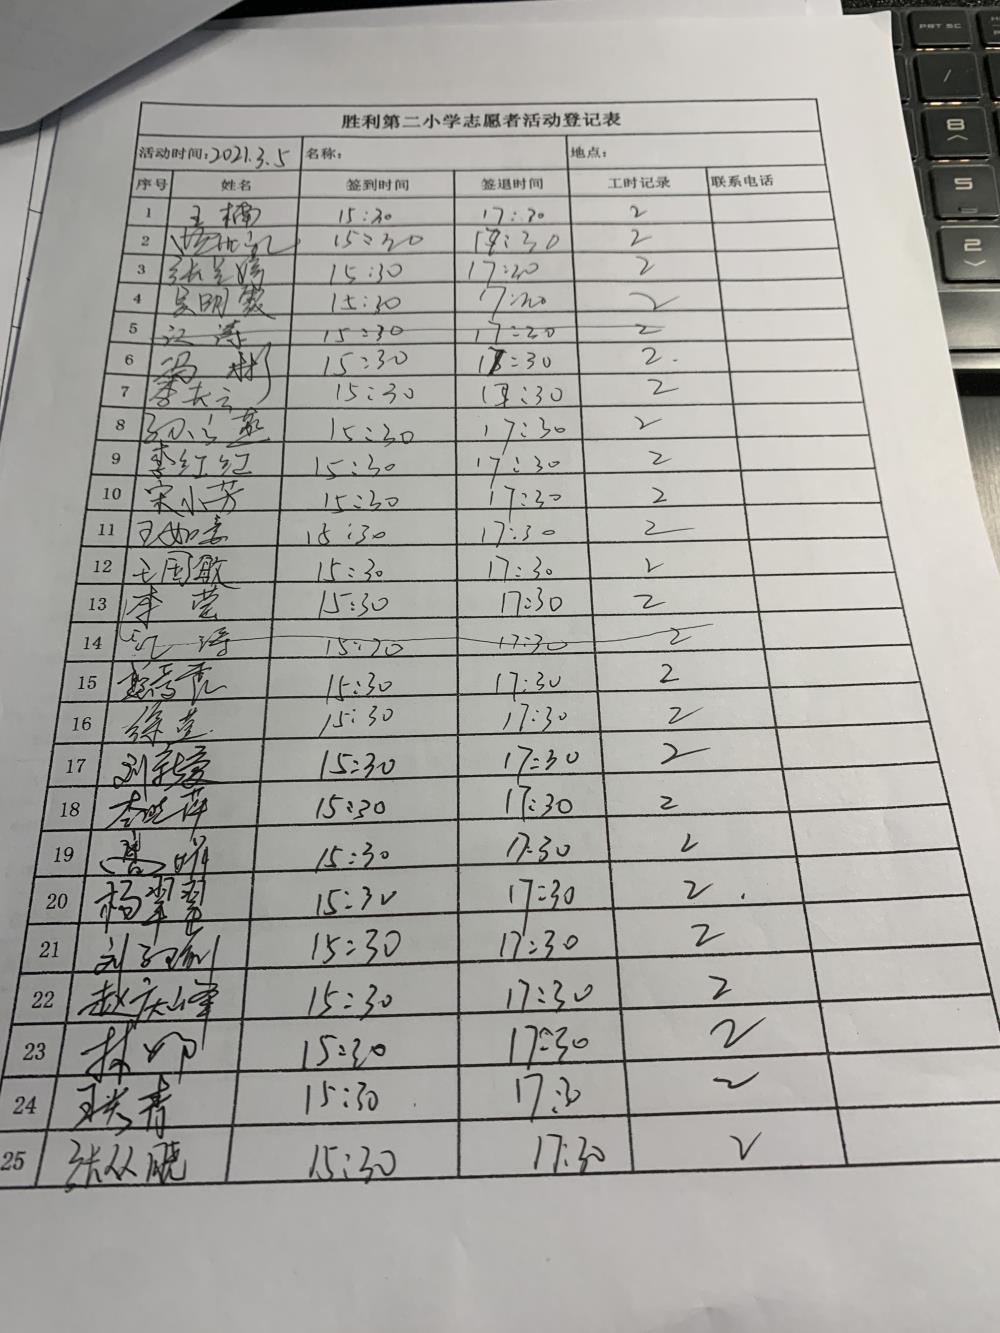 胜利第二小学志愿者活动登记表
活动时间:2021.3.5 名称: 地点:
序号 姓名 签到时间 签退时间 工时记录 联系电话
1 王楠 15:30 17:30 2
2 15:30 17:30 2
3 15:30 17:30 2
4 吴明霞 15:30 17:30 2
5 江涛 15:30 17:30 2
6 冯彬 15:30 17:30 2.
7 李长云 15:30 17:30 2
8 15:30 17:30 2
9 李红红 15:30 17:30 2
10 宋小芳 15:30 17:30 2
11 王如意 15:30 17:30 2
12 王国敏 15:30 17:30 2
13 李莹 15:30 17:30 2
14 15:30 17:30 2
15 15:30 17:30 2
16 徐芝 15:30 17:30 2
17 刘新爱 15:30 17:30 2
18 李晓萍 15:30 17:30 2
19 15:30 17:30 2
20 杨翠翠 15:30 17:30 2
21 15:30 17:30 2
22 赵庆峰 15:30 17:30 2
23 林帅 15:30 17:30 2
24 15:30 17:30 2
25 张双晓 15:30 17:30 2
PRT SC
/
8
5
2